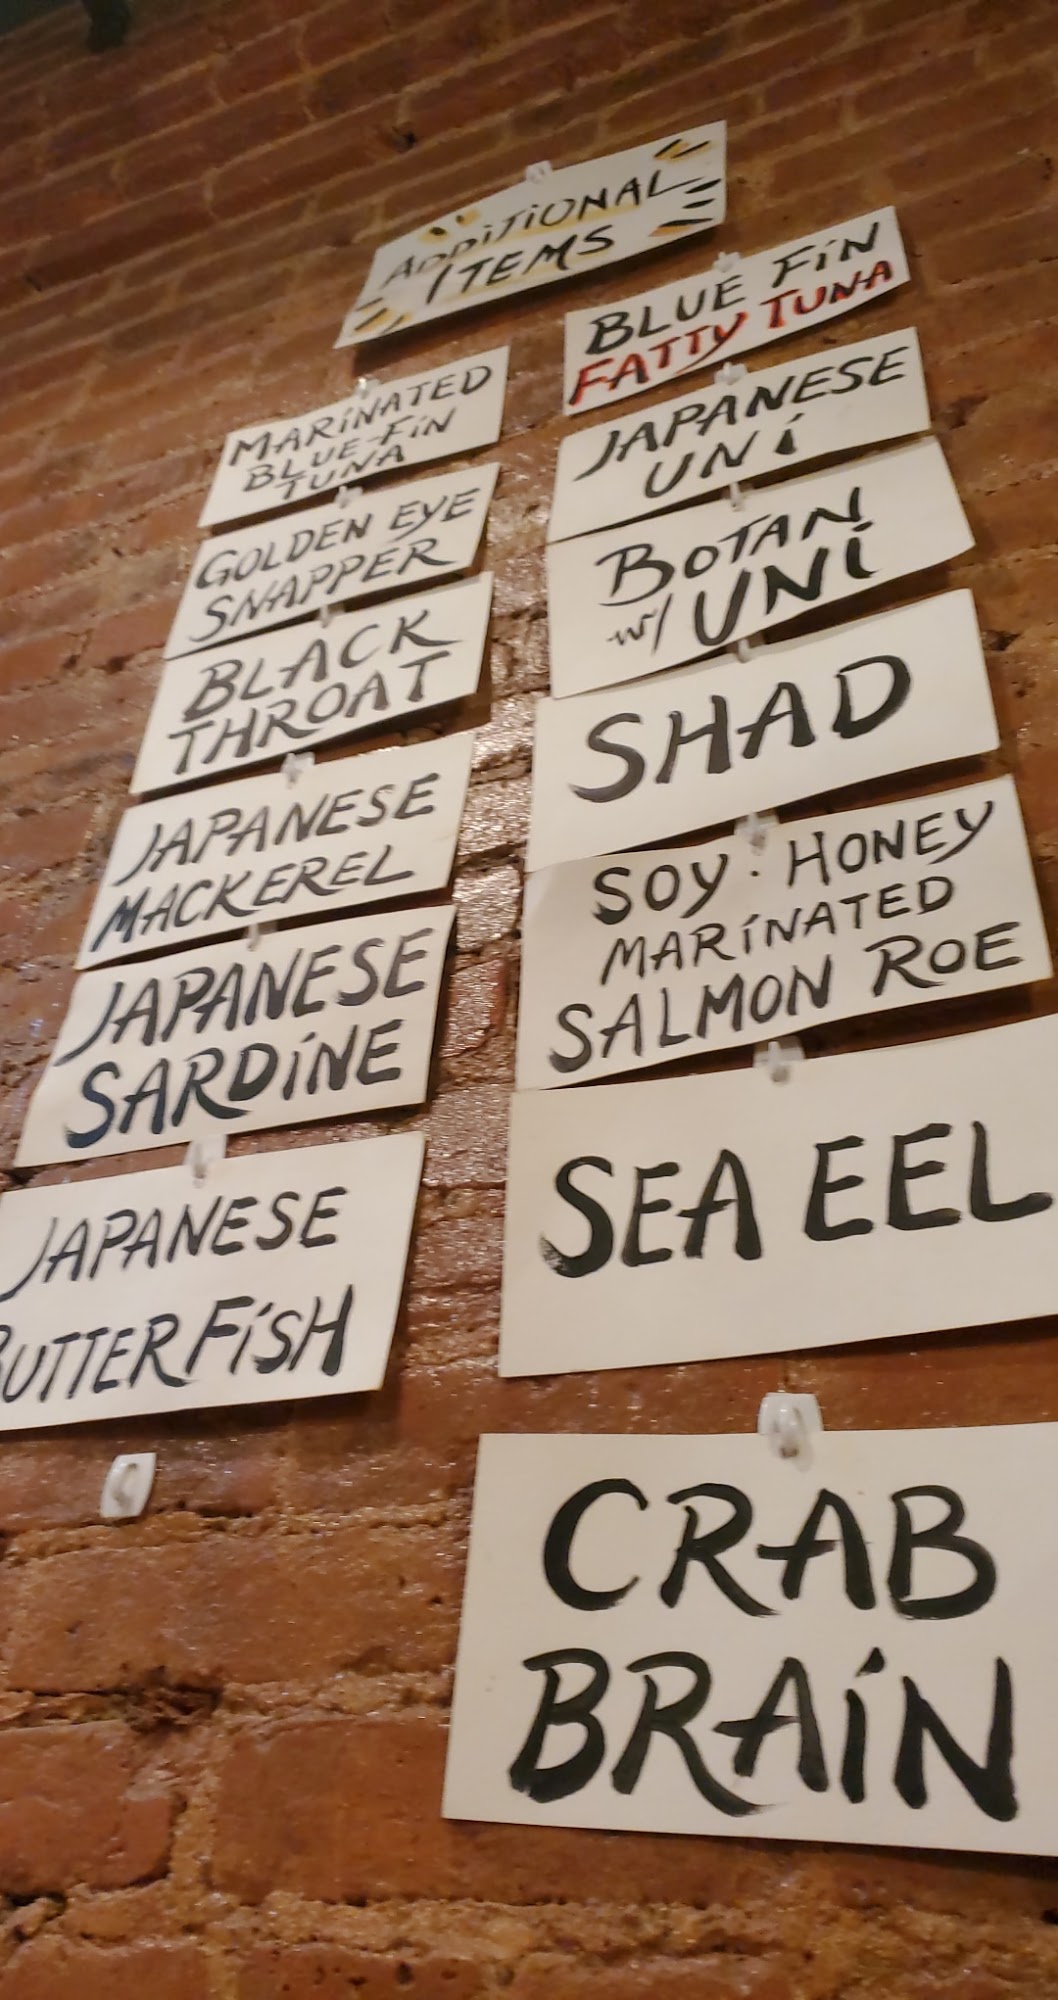 ADDITIONAL
ITEMS
MARINATED
BLUE-FIN
TUNA
GOLDEN EYE
SNAPPER
BLACK
THROAT
JAPANESE
MACKEREL
JAPANESE
SARDINE
JAPANESE
BUTTERFISH
BLUE FIN
FATTY TUNA
JAPANESE
UNI
BOTAN
w/ UNI
SHAD
SOY · HONEY
MARINATED
SALMON ROE
SEA EEL
CRAB
BRAIN